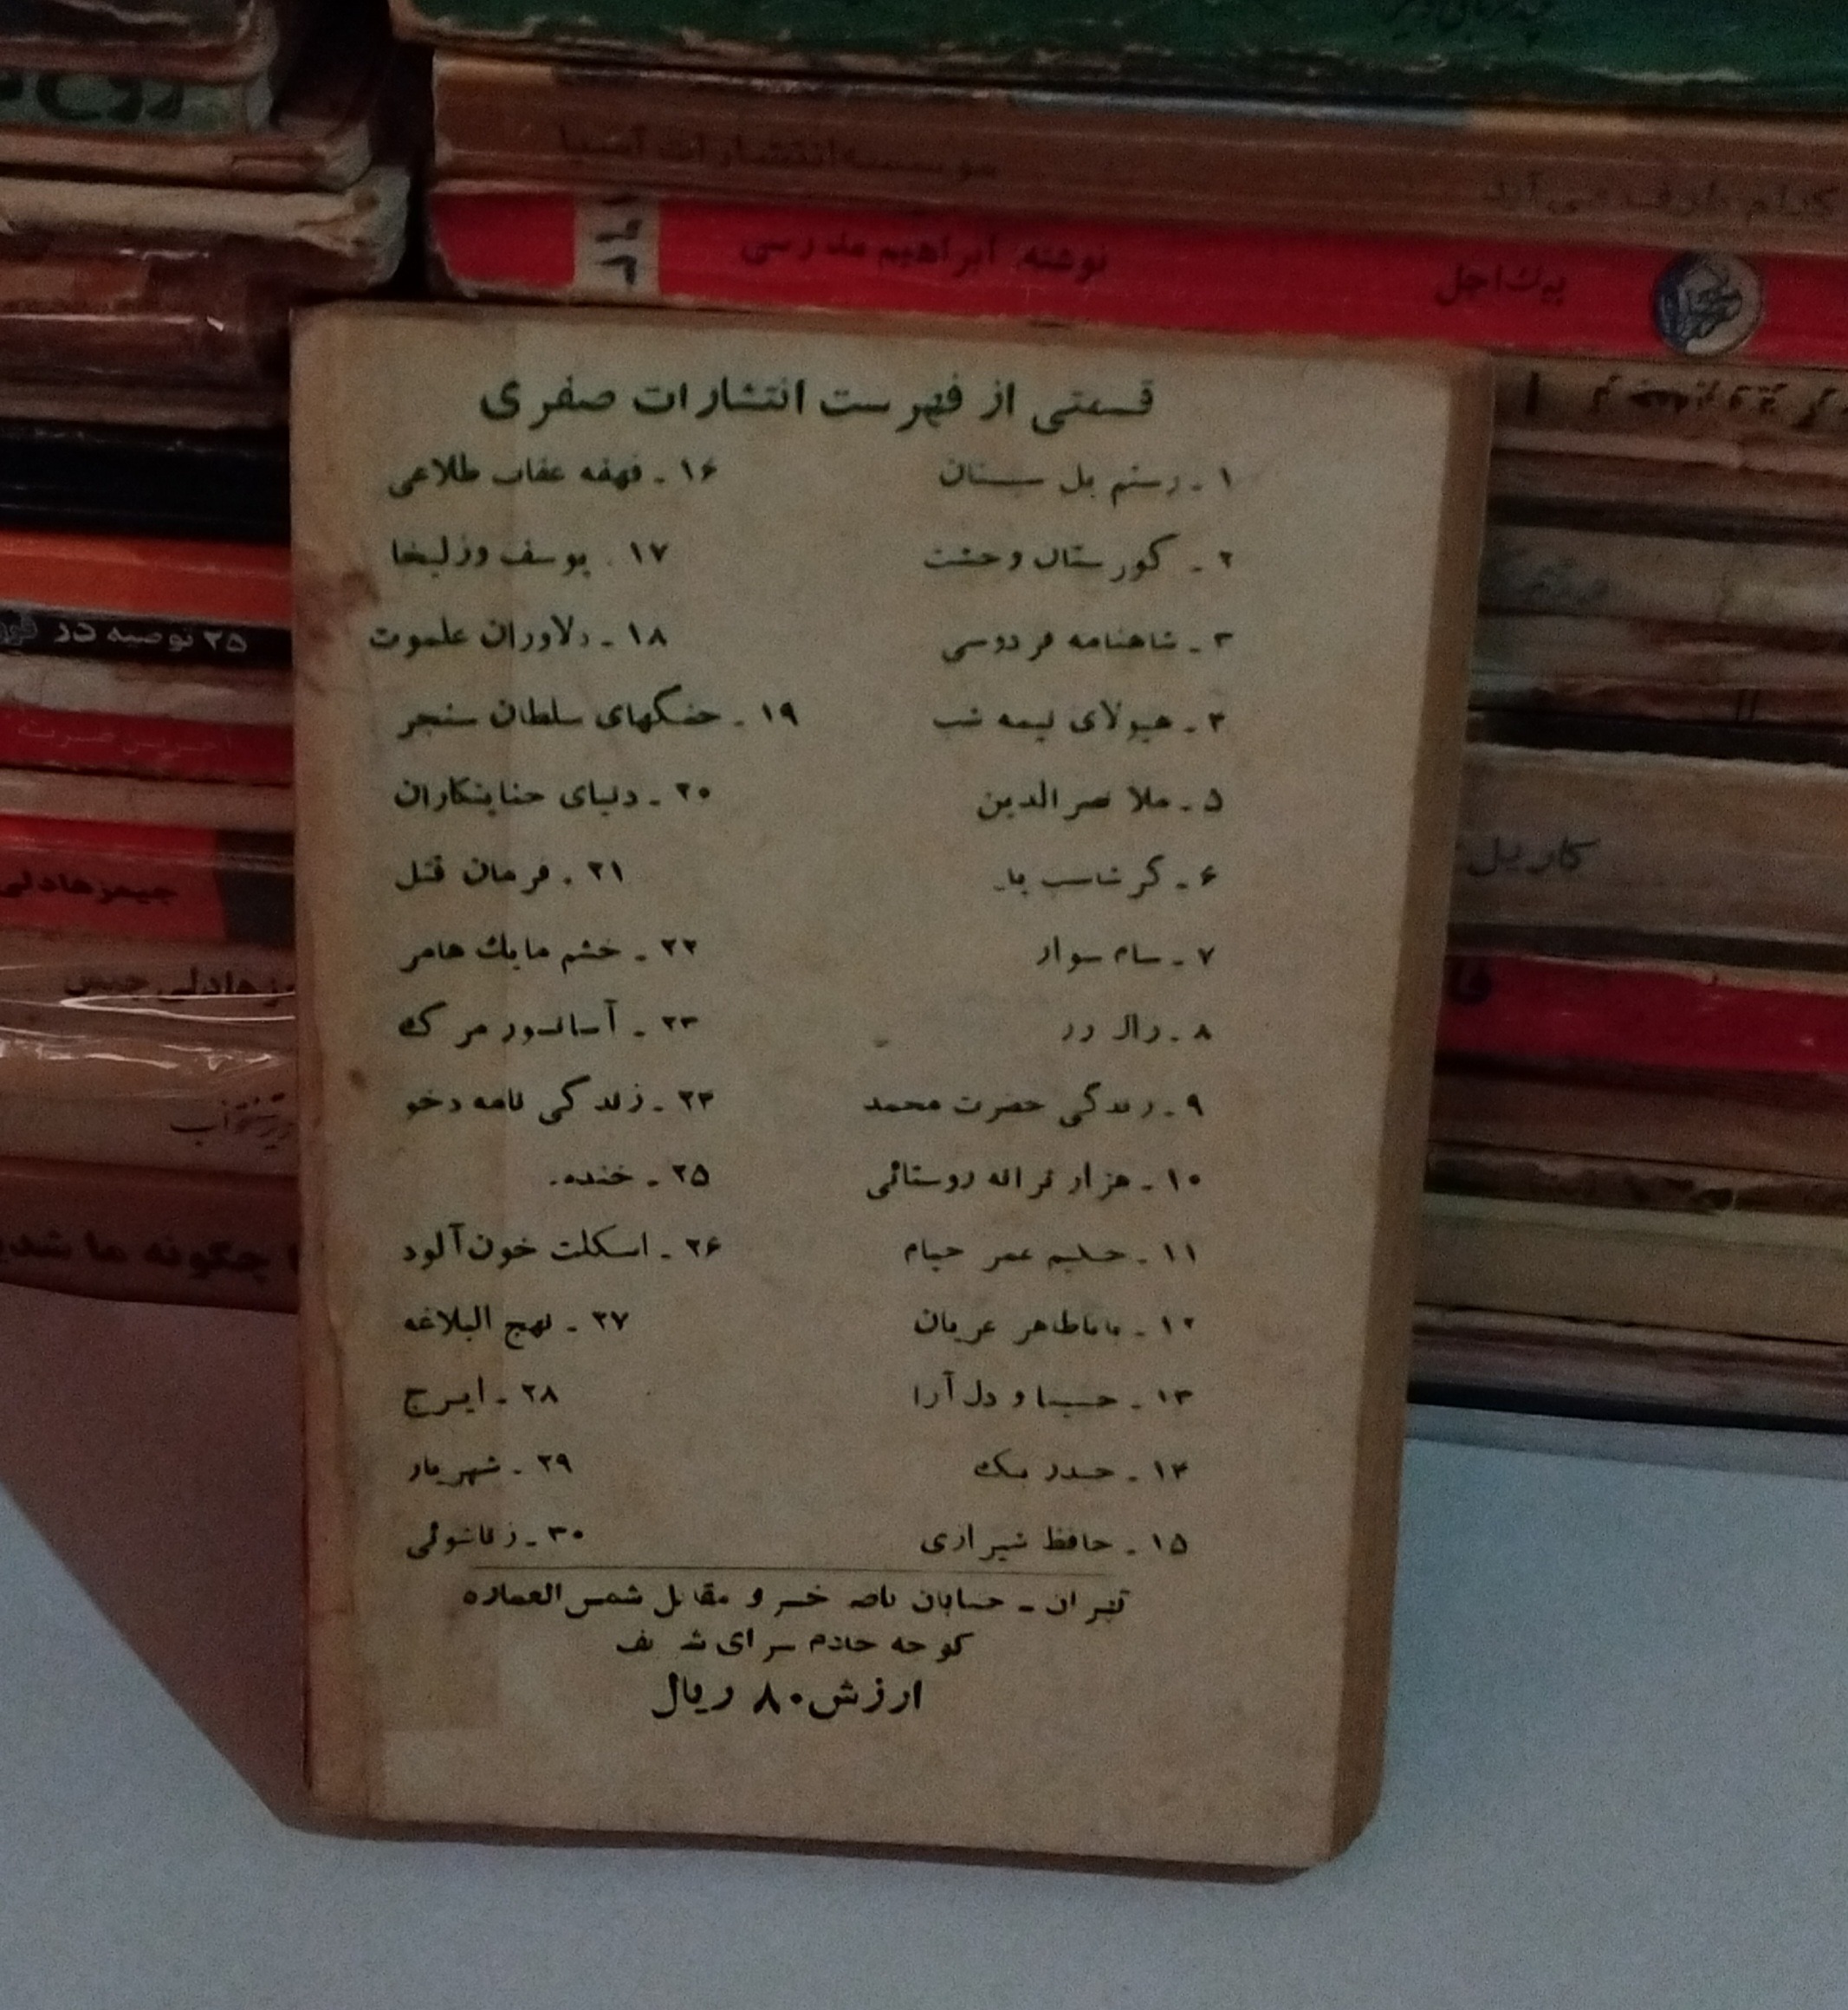 موسسه انتشارات آسیا
نوشته: ابراهیم مدرسی
پیک اجل
قسمتی از فهرست انتشارات صفری
۱ - رستم یل سیستان
۲ - گورستان وحشت
۳ - شاهنامه فردوسی
۴ - هیولای نیمه شب
۵ - ملا نصرالدین
۶ - گرشاسب
۷ - سام سوار
۸ - زال زر
۹ - زندگی حضرت محمد
۱۰ - هزار ترانه روستائی
۱۱ - حکیم عمر خیام
۱۲ - باباطاهر عریان
۱۳ - حسینا و دل آرا
۱۴ - حیدر بیک
۱۵ - حافظ شیرازی
۱۶ - قهقه عقاب طلاعی
۱۷ - یوسف وزلیخا
۱۸ - دلاوران علموت
۱۹ - جنگهای سلطان سنجر
۲۰ - دنیای جنایتکاران
۲۱ - فرمان قتل
۲۲ - خشم مایک هامر
۲۳ - آسانسور مرگ
۲۴ - زندگی نامه دخو
۲۵ - خنده
۲۶ - اسکلت خون آلود
۲۷ - نهج البلاغه
۲۸ - ایرج
۲۹ - شهریار
۳۰ - زناشوئی
تهران - خیابان ناصر خسرو مقابل شمس العماره
کوچه خادم سرای شریف
ارزش ۸۰ ریال
۲۵ توصیه در
جیمزهادلی
هادلی چیس
چگونه ما